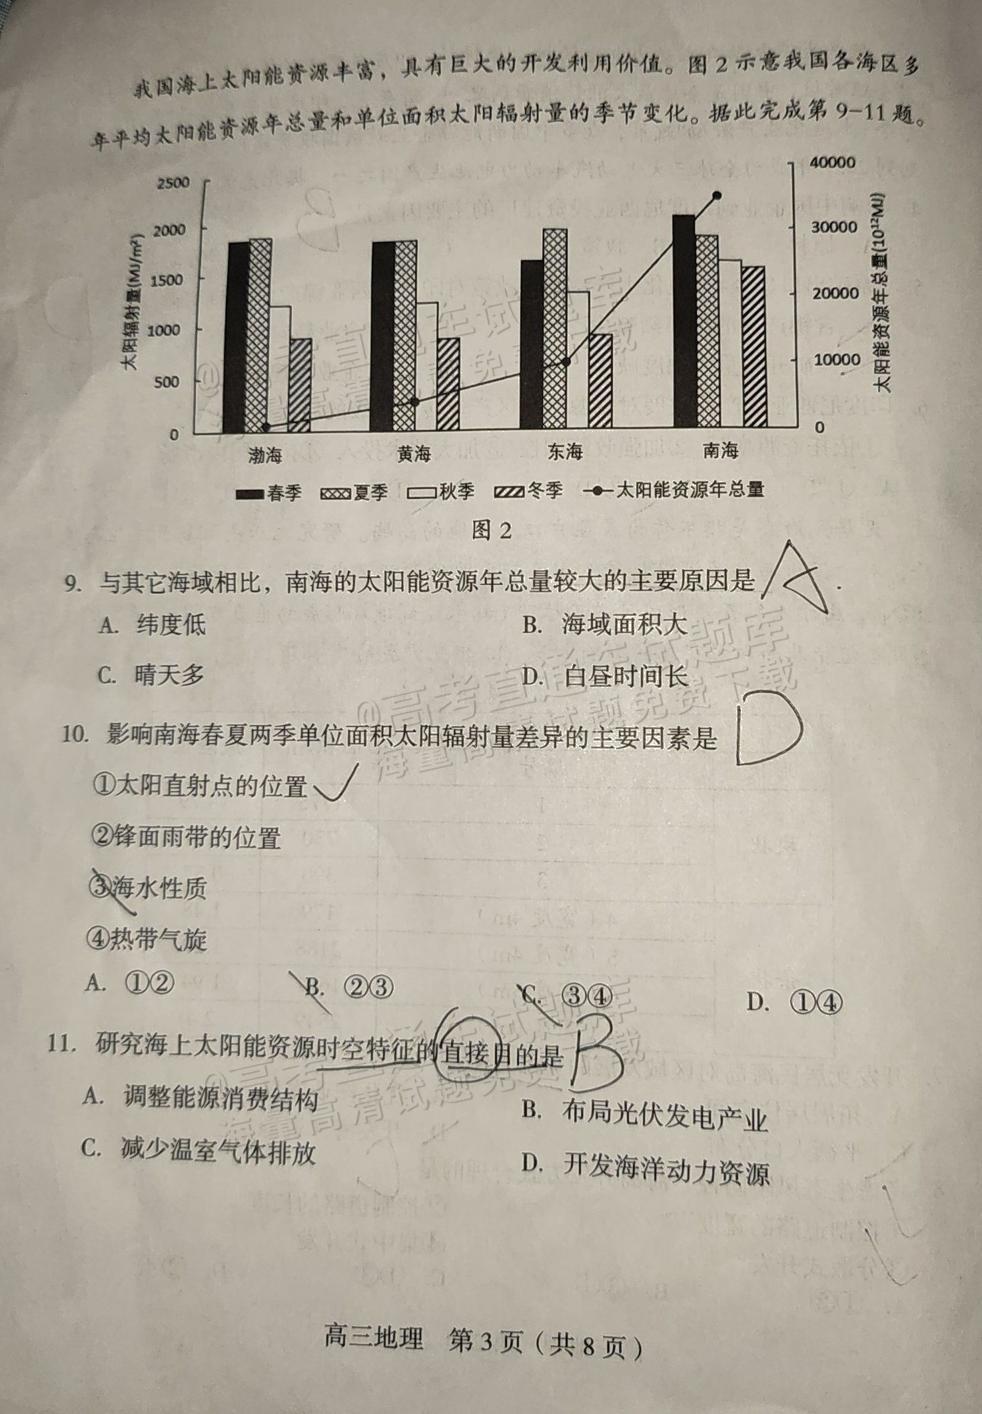 我国海上太阳能资源丰富，具有巨大的开发利用价值。图2示意我国各海区多
年平均太阳能资源年总量和单位面积太阳辐射量的季节变化。据此完成第9-11题。
太阳辐射量(MJ/m²)
2500
2000
1500
1000
500
0
40000
30000
20000
10000
0
太阳能资源年总量(10¹²MJ)
渤海 黄海 东海 南海
春季 夏季 秋季 冬季 太阳能资源年总量
图2
9. 与其它海域相比，南海的太阳能资源年总量较大的主要原因是 A
A. 纬度低 B. 海域面积大
C. 晴天多 D. 白昼时间长
10. 影响南海春夏两季单位面积太阳辐射量差异的主要因素是 D
①太阳直射点的位置
②锋面雨带的位置
③海水性质
④热带气旋
A. ①② B. ②③ C. ③④ D. ①④
11. 研究海上太阳能资源时空特征的直接目的是 B
A. 调整能源消费结构 B. 布局光伏发电产业
C. 减少温室气体排放 D. 开发海洋动力资源
高三地理 第3页（共8页）
@高考直通车试题库
海量高清试题免费下载
@高考直通车试题库
海量高清试题免费下载
@高考直通车试题库
海量高清试题免费下载